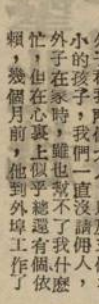 小的孩子，我們一直沒請佣人，
外子在家時，雖也幫不了我什麽
忙，但在心裏上似乎總還有個依
賴，幾個月前，他到外埠工作了